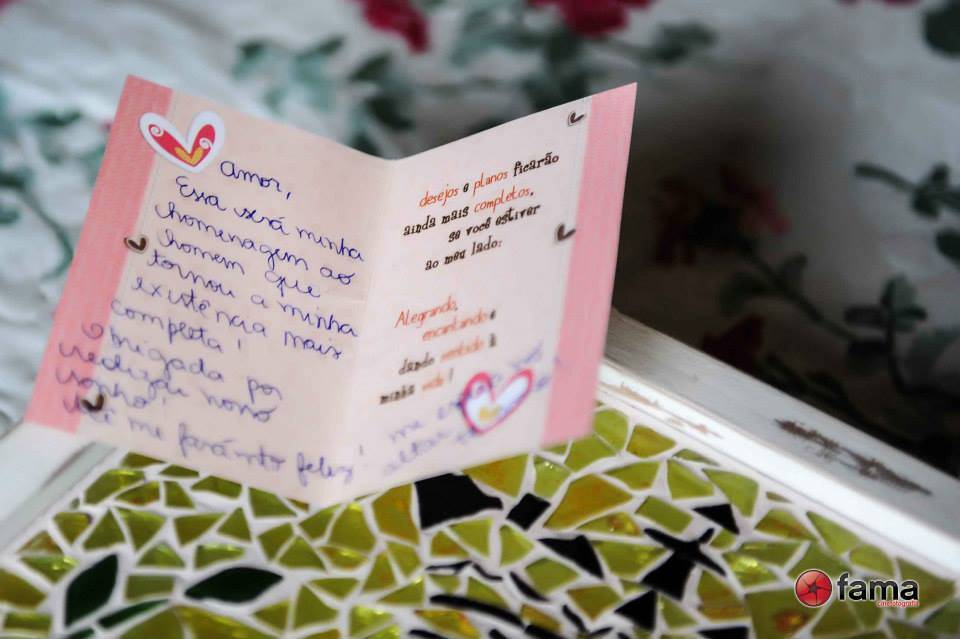 Amor,
Essa será minha
homenagem ao
homem que
tornou a minha
existência mais
completa!
Obrigada por
realizar nosso
sonho!
Você me faz tão feliz!
desejos e planos ficarão
ainda mais completos.
se você estiver
ao meu lado:
Alegrando,
encantando e
dando sentido à
minha vida!
me
altar
fama
cinefotografia